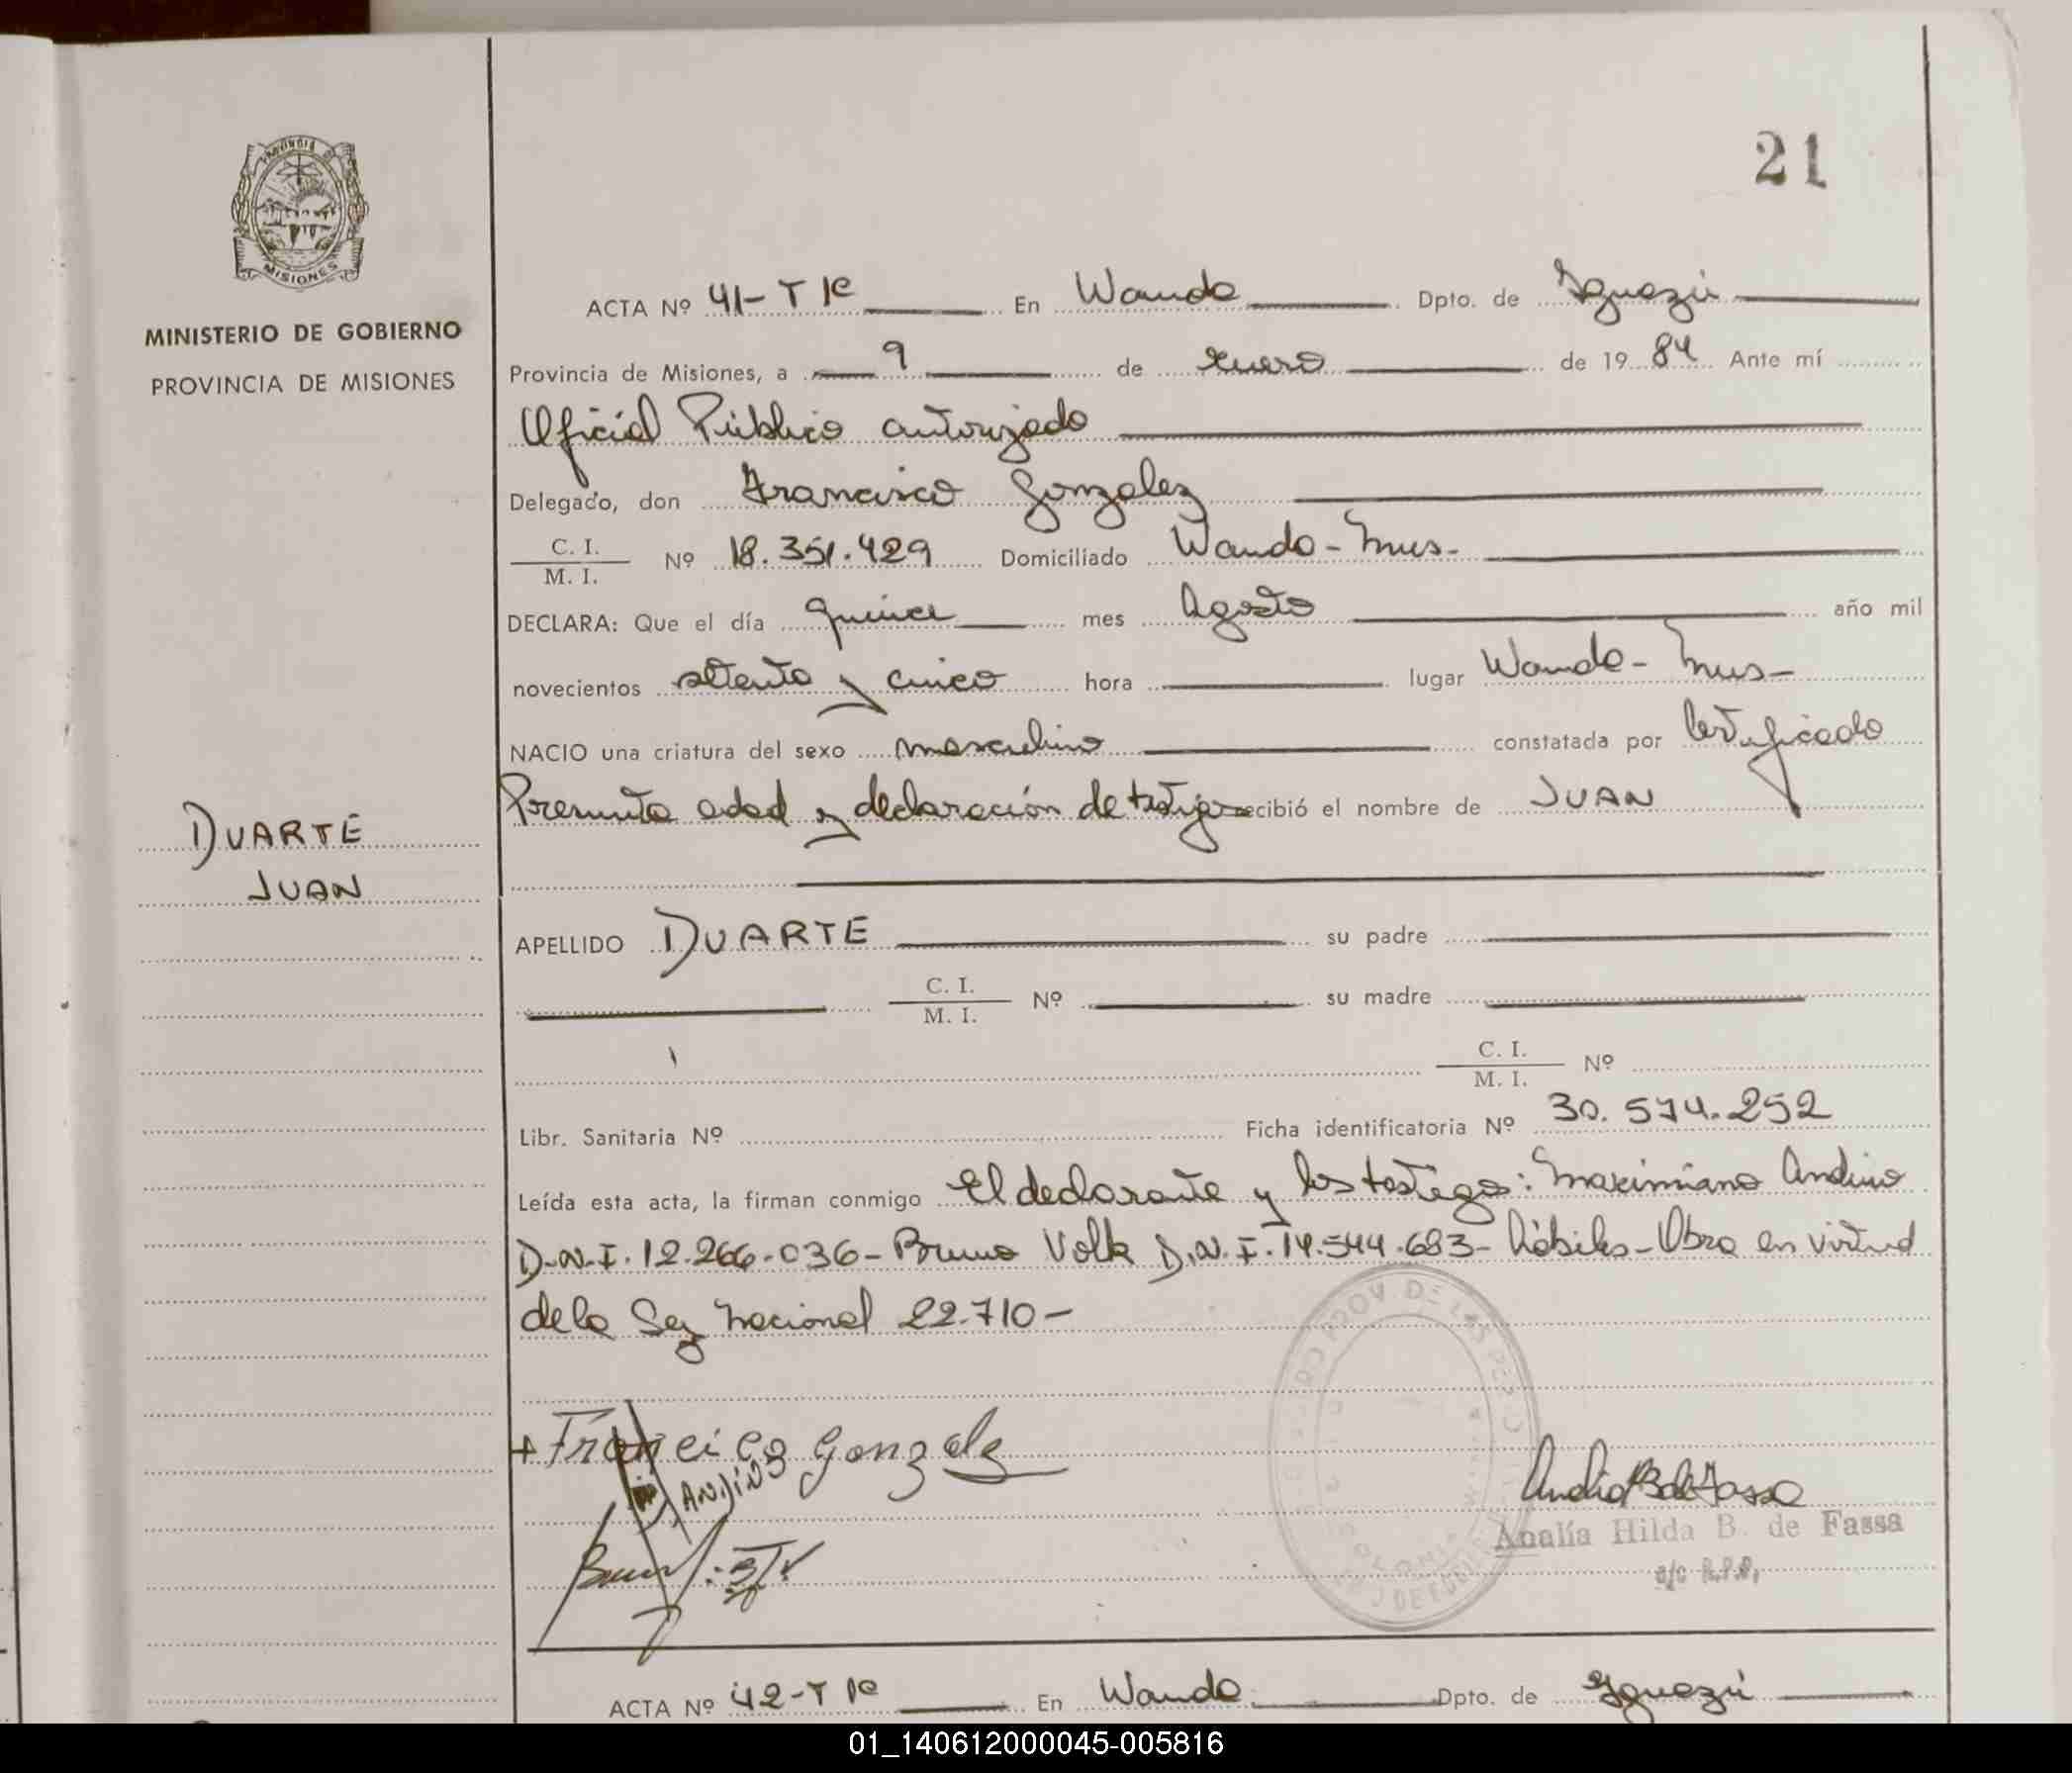 21
PROVINCIA DE
MISIONES
MINISTERIO DE GOBIERNO
PROVINCIA DE MISIONES
ACTA Nº 41-T Iº En Wanda Dpto. de Iguazú
Provincia de Misiones, a 9 de enero de 1984 Ante mí
Oficial Público autorizado
Delegado, don Francisco Gonzalez
C. I.
M. I. Nº 18.351.429 Domiciliado Wanda - Mnes-
DECLARA: Que el día quince mes Agosto año mil
novecientos setenta y cinco hora lugar Wanda - Mnes-
NACIO una criatura del sexo masculino constatada por Certificado
Presunta edad y declaración de testigos recibió el nombre de JUAN
DUARTE
JUAN
APELLIDO DUARTE su padre
C. I.
M. I. Nº su madre
C. I.
M. I. Nº
Libr. Sanitaria Nº Ficha identificatoria Nº 30.574.252
Leída esta acta, la firman conmigo El declarante y los testigos: Maximiano Andino
D.N.I. 12.266.036- Bruno Volk D.N.I. 14.544.683- hábiles- Obra en virtud
de la Ley Nacional 22.710-
+ Francisco Gonzalz
ANDINO
Analía Hilda B. de Fassa
a/c R.P.P.
ACTA Nº 42-T Iº En Wanda Dpto. de Iguazú
01_140612000045-005816